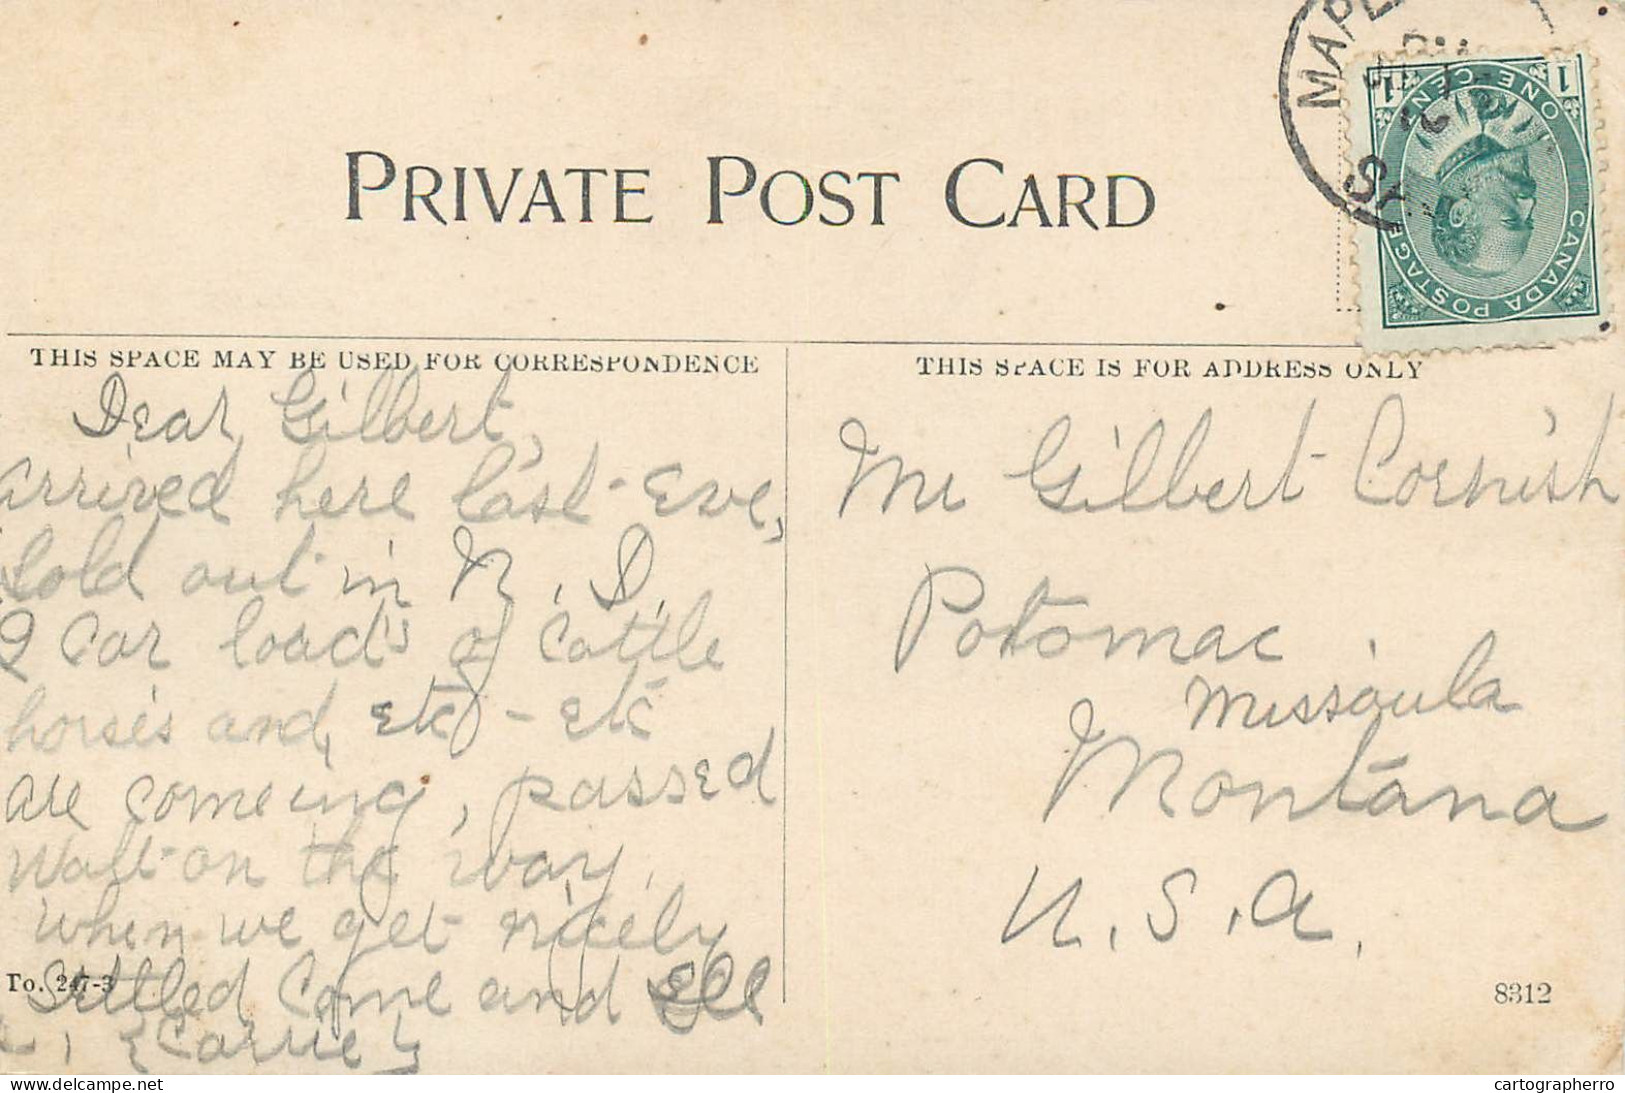 PRIVATE POST CARD
MAPL
1 ONE CENT 1
CANADA POSTAGE
THIS SPACE MAY BE USED FOR CORRESPONDENCE
Dear Gilbert,
arrived here last Eve,
Sold out in N. D.
2 Car loads of Cattle
horses and, etc - etc
are comeing, passed
Walt on the way,
When we get nicely
Settled Come and See
Carrie
To. 247-3
THIS SPACE IS FOR ADDRESS ONLY
Mr Gilbert Cornish
Potomac
Missoula
Montana
U.S.A.
8312
delcampe.net
cartographerro